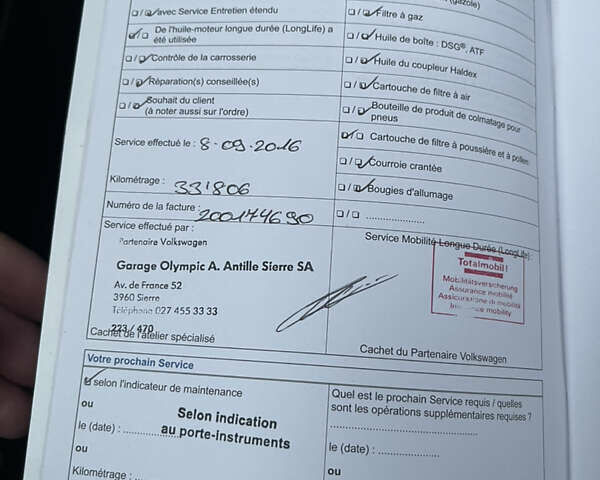 (gazole)
avec Service Entretien étendu
De l'huile-moteur longue durée (LongLife) a
été utilisée
Contrôle de la carrosserie
Réparation(s) conseillée(s)
Souhait du client
(à noter aussi sur l'ordre)
Filtre à gaz
Huile de boîte : DSG®, ATF
Huile du coupleur Haldex
Cartouche de filtre à air
Bouteille de produit de colmatage pour
pneus
Cartouche de filtre à poussière et à pollen
Courroie crantée
Bougies d'allumage
Service effectué le : 8.09.2016
Kilométrage : 331806
Numéro de la facture : 200174690
Service effectué par :
Partenaire Volkswagen
Garage Olympic A. Antille Sierre SA
Av. de France 52
3960 Sierre
Téléphone 027 455 33 33
223 / 470
Cachet de l'atelier spécialisé
Service Mobilité Longue Durée (LongLife) :
Totalmobil!
Mobilitätsversicherung
Assurance mobilité
Assicurazione di mobilità
mobility
Cachet du Partenaire Volkswagen
Votre prochain Service
selon l'indicateur de maintenance
ou
Selon indication
au porte-instruments
le (date) :
ou
Kilométrage :
Quel est le prochain Service requis / quelles
sont les opérations supplémentaires requises ?
le (date) :
ou